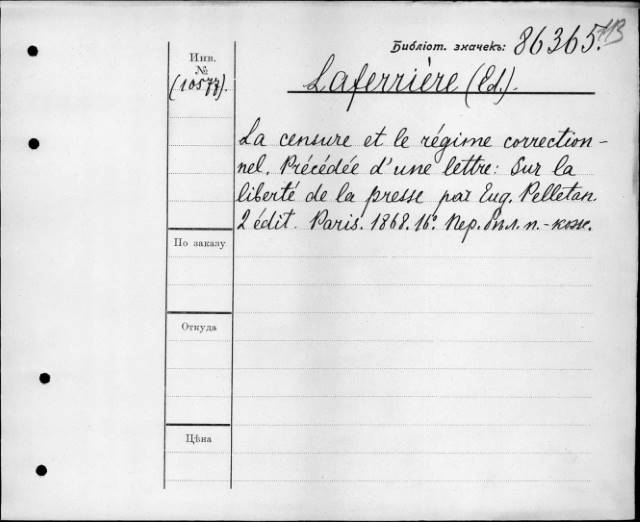 Библіот. значекъ: 86365.
Инв.
№
(10577).
Laferrière (Ed.).
La censure et le régime correction-
nel. Précédée d'une lettre: Sur la
liberté de la presse par Eug. Pelletan.
2 édit. Paris. 1868. 16º. Пер. бѣл. п.-кож.
По заказу
Откуда
Цѣна